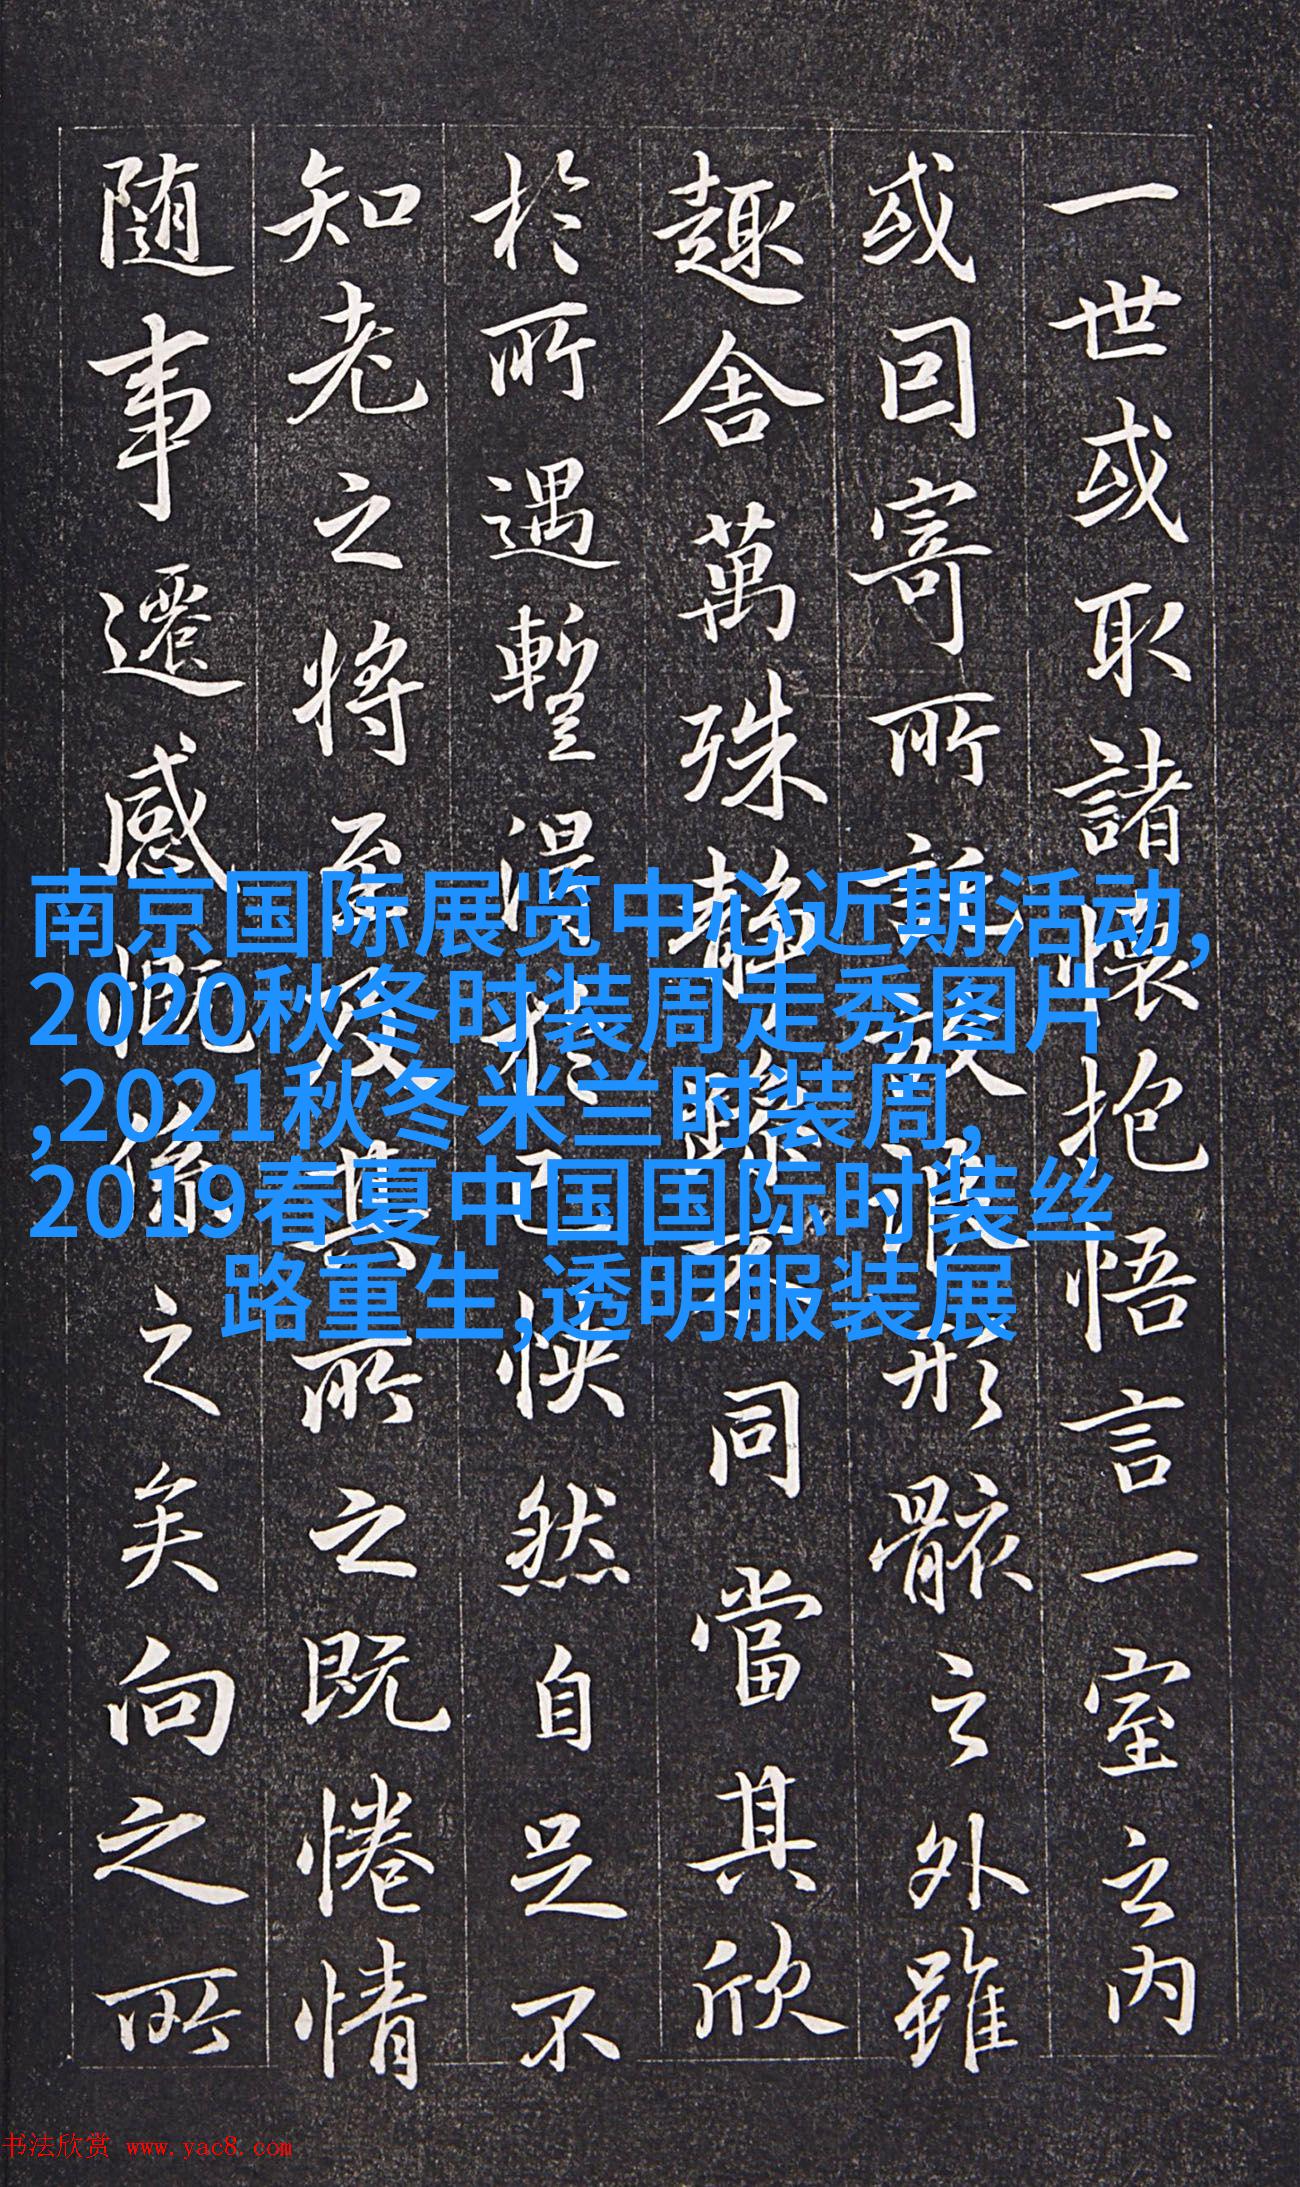 一世或取諸懷抱悟言一室之内
或囙寄所託放浪形骸之外雖
趣舍萬殊静躁不同當其欣
於所遇暫得於己怏然自足不
知老之将至及其所之既惓情
随事遷感慨係之矣向之所
南京国际展览中心近期活动,
2020秋冬时装周走秀图片
,2021秋冬米兰时装周,
2019春夏中国国际时装丝
路重生,透明服装展
书法欣赏 www.yac8.com